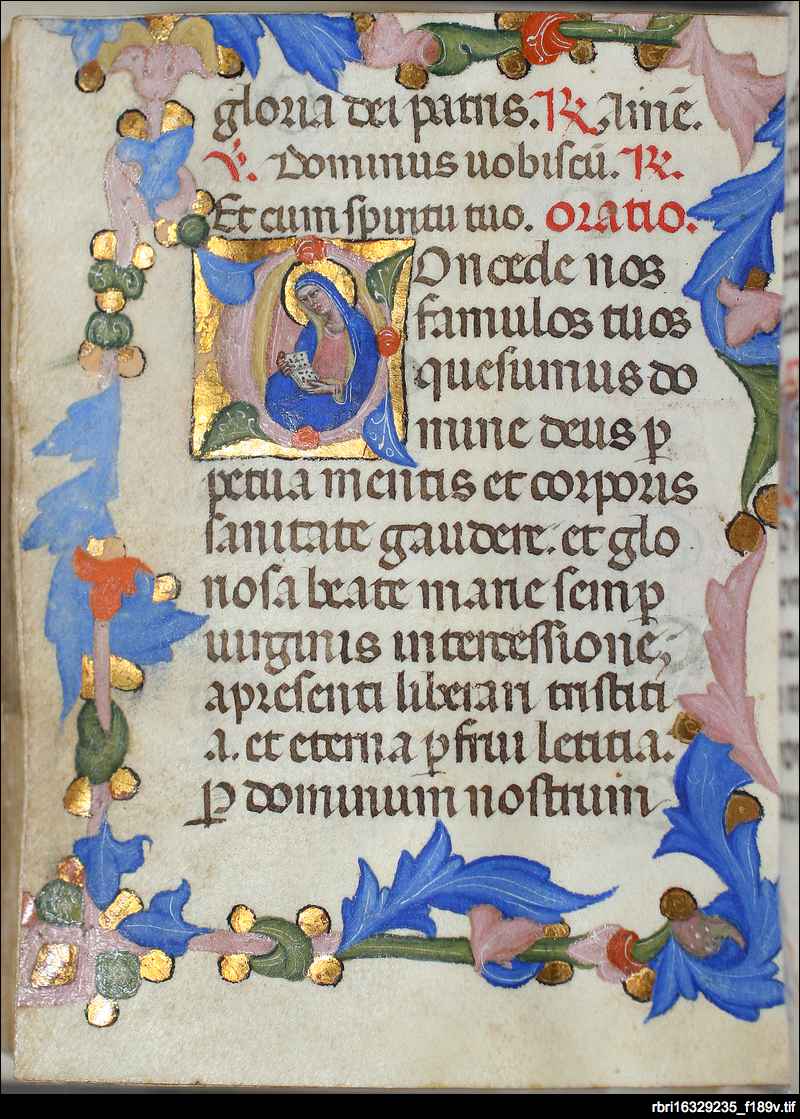 gloria dei patris. R. Ame᷃.
V. Dominus uobiscu᷃. R.
Et cum spiritu tuo. Oratio.
Concede nos
famulos tuos
quesumus do
mine deus p̲
petua mentis et corporis
sanitate gaudere. et glo
riosa beate marie semp̲
uirginis intercessione,
apresenti liberari tristiti
a. et eterna p̲frui letitia.
P̲ dominum nostrum
rbri16329235_f189v.tif